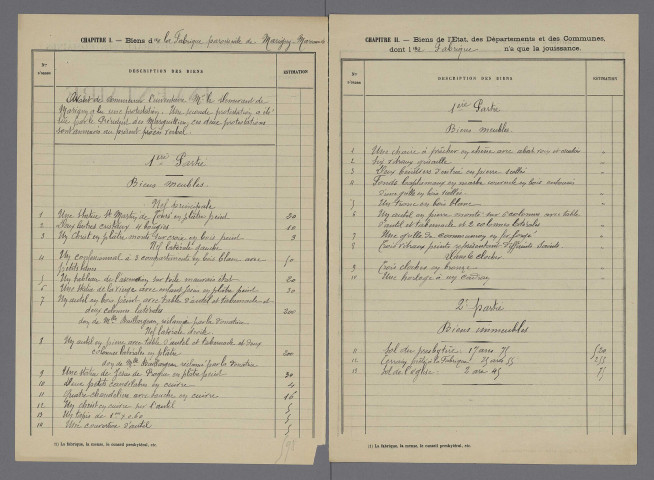 CHAPITRE I. — Biens de la Fabrique paroissiale de Marigny-Marmande
Nos d'ordre
DESCRIPTION DES BIENS
ESTIMATION
Avant de commencer l'inventaire Mr le desservant de
Marigny a lu une protestation. Une seconde protestation a été
lue par le Président des Marguilliers, ces deux protestations
sont annexées au présent procès verbal.
1ère Partie
Biens meubles.
Nef principale
1 Une statue St Martin de Tours en plâtre peint 20
2 4 bougies 10
3 Un christ en plâtre monté sur croix en bois peint 3
Nef latérale gauche
4 Un confessionnal à 3 compartiments en bois blanc avec 50
5 Un tableau de l'assomption sur toile mauvais état 20
6 Une statue de la vierge avec enfant Jésus en plâtre peint 30
7 Un autel en bois peint avec table d'autel et tabernacle et
deux colonnes latérales 200
don de Mlle réclamé par la donatrice
Nef latérale droite
8 Un autel en pierre avec table d'autel et tabernacle et deux
colonnes latérales en plâtre 200
don de Mlle réclamé par la donatrice
9 Une statue de en plâtre peint 30
10 Deux petits candélabres en cuivre 4
11 Quatre chandeliers avec souche en cuivre 16
12 Un christ en cuivre sur l'autel 5
13 Un tapis de 1m × 0.60 5
14 Une couverture d'autel 5
(1) La fabrique, la mense, le conseil presbytéral, etc.
CHAPITRE II. — Biens de l'Etat, des Départements et des Communes,
dont la Fabrique n'a que la jouissance.
Nos d'ordre
DESCRIPTION DES BIENS
ESTIMATION
1ère Partie
Biens meubles.
1 Une chaire à prêcher en chêne avec abat voix et escalier "
2 Six vitraux grisaille "
3 Deux bénitiers d'entrée en pierre scellés "
4 Fonts baptismaux en marbre couvercle en bois entourés
d'une grille en bois scellés "
5 Un Tronc en bois blanc "
6 Un autel en pierre monté sur 2 colonnes avec table
d'autel et tabernacle et 2 colonnes latérales "
7 Une grille de communion en fer forgé "
8 Trois vitraux peints représentant différents Saints "
Dans le clocher
9 Trois cloches en bronze "
10 Une horloge à un cadran "
2e partie
Biens immeubles
11 Sol du presbytère 17 ares 75
12 25 ares 55
13 Sol de l'église 2 ares 45
(1) La fabrique, la mense, le conseil presbytéral, etc.